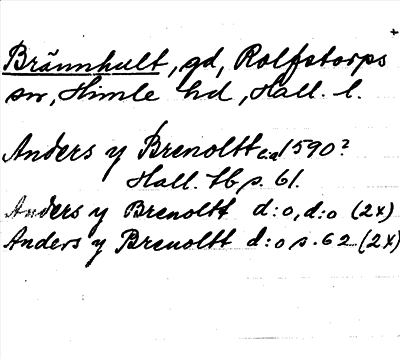 +
Brännhult, gd, Rolfstorps
sn, Himle hd, Hall. l.
Anders y Brenoltt ca 1590?
Hall. tb s. 61.
Anders y Brenoltt d:o, d:o (2x)
Anders y Brenoltt d:o s. 62 (2x)